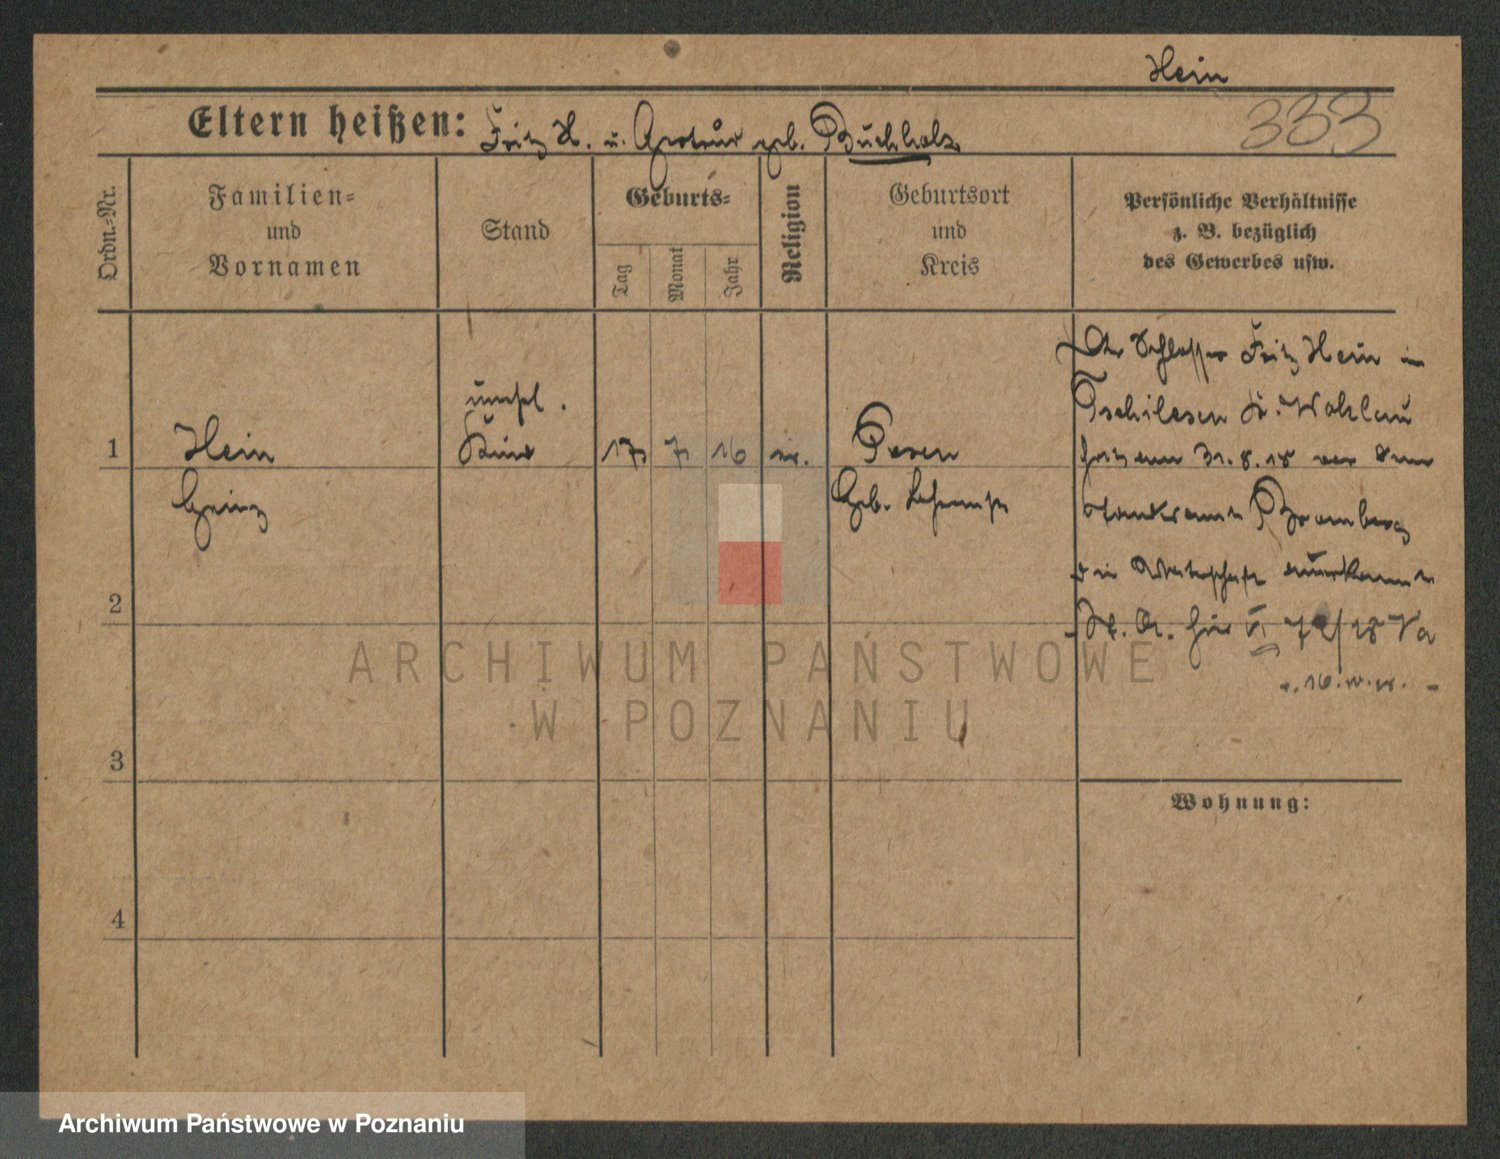 Hein
333
Eltern heißen: Fritz H. u. Gertrud geb. Buchholz
Ordn.-Nr.
Familien-
und
Vornamen
Stand
Geburts-
Tag
Monat
Jahr
Religion
Geburtsort
und
Kreis
Persönliche Verhältnisse
z. B. bezüglich
des Gewerbes usw.
1
Hein
Heinz
unehel.
Kind
17 7 16 ev.
Posen
Geb.
Der Schlosser Fritz Hein in
Tschilesen Kr. Wohlau
hat am 31.8.18 vor dem
Standesamt Bromberg
die Vaterschaft anerkannt
2
3
4
Wohnung:
ARCHIWUM PAŃSTWOWE
W POZNANIU
Archiwum Państwowe w Poznaniu